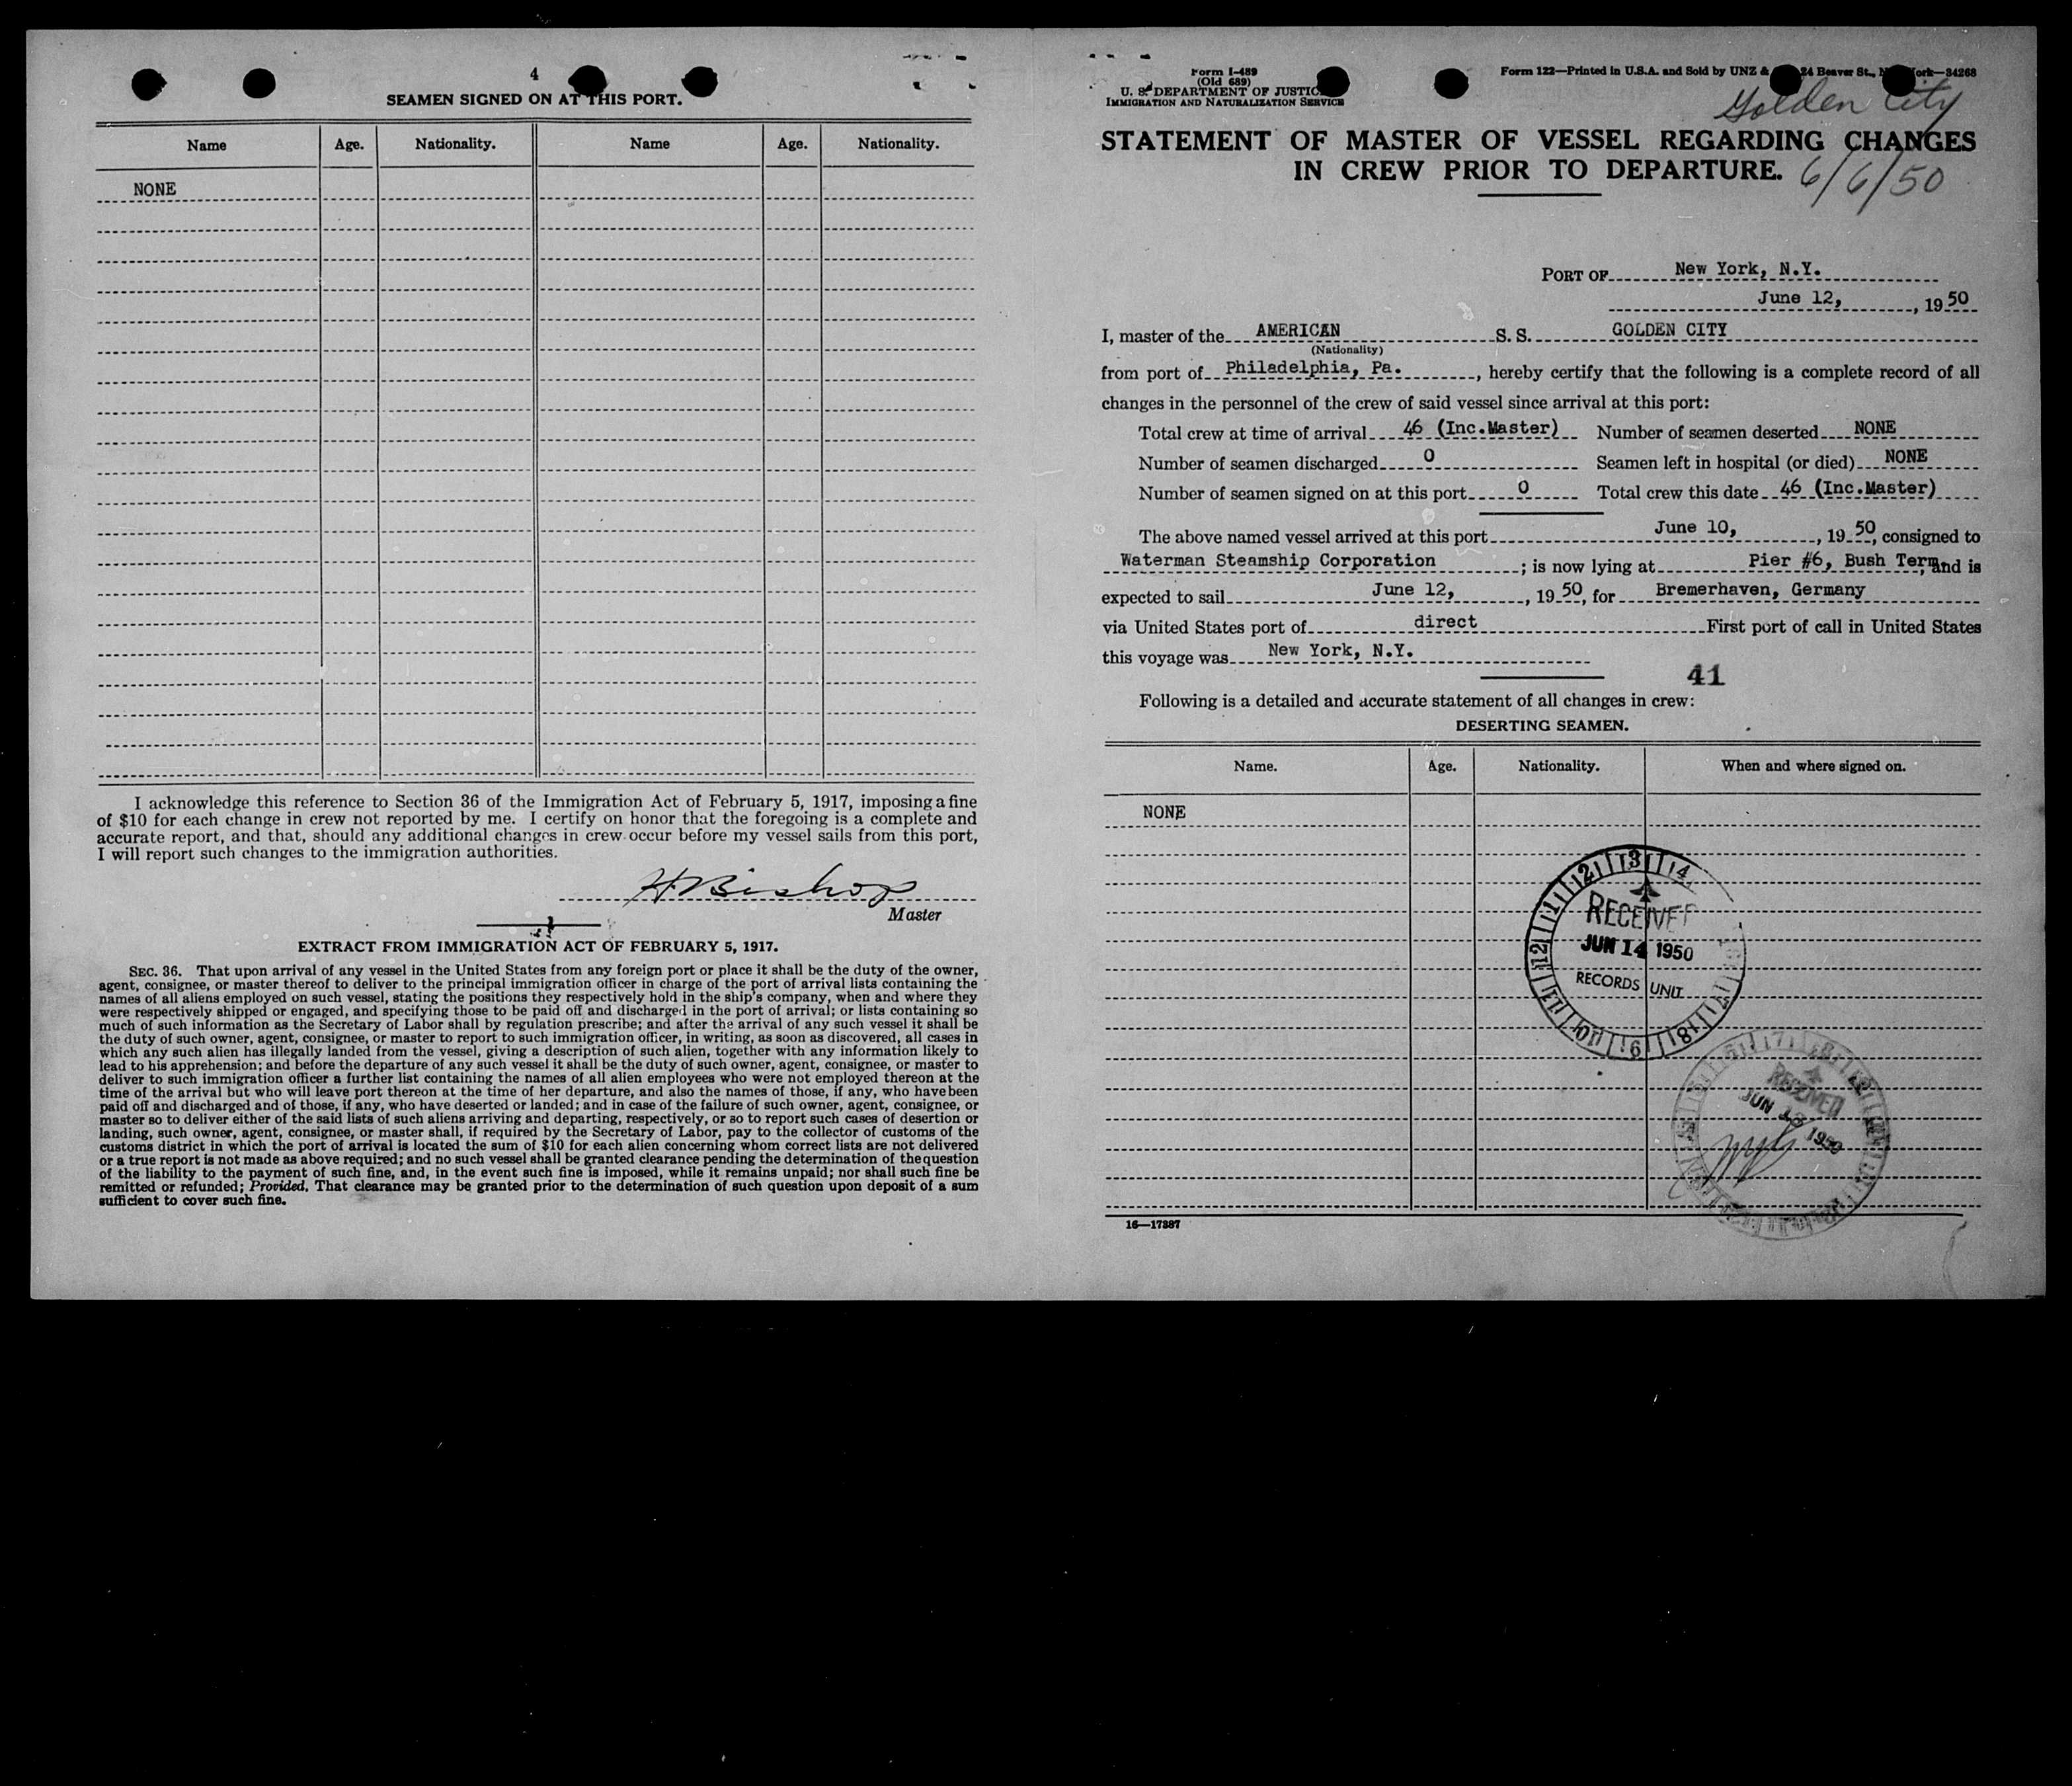 4
SEAMEN SIGNED ON AT THIS PORT.
Name Age. Nationality. Name Age. Nationality.
NONE
I acknowledge this reference to Section 36 of the Immigration Act of February 5, 1917, imposing a fine
of $10 for each change in crew not reported by me. I certify on honor that the foregoing is a complete and
accurate report, and that, should any additional changes in crew occur before my vessel sails from this port,
I will report such changes to the immigration authorities.
H Bishop
Master
EXTRACT FROM IMMIGRATION ACT OF FEBRUARY 5, 1917.
SEC. 36. That upon arrival of any vessel in the United States from any foreign port or place it shall be the duty of the owner,
agent, consignee, or master thereof to deliver to the principal immigration officer in charge of the port of arrival lists containing the
names of all aliens employed on such vessel, stating the positions they respectively hold in the ship's company, when and where they
were respectively shipped or engaged, and specifying those to be paid off and discharged in the port of arrival; or lists containing so
much of such information as the Secretary of Labor shall by regulation prescribe; and after the arrival of any such vessel it shall be
the duty of such owner, agent, consignee, or master to report to such immigration officer, in writing, as soon as discovered, all cases in
which any such alien has illegally landed from the vessel, giving a description of such alien, together with any information likely to
lead to his apprehension; and before the departure of any such vessel it shall be the duty of such owner, agent, consignee, or master to
deliver to such immigration officer a further list containing the names of all alien employees who were not employed thereon at the
time of the arrival but who will leave port thereon at the time of her departure, and also the names of those, if any, who have been
paid off and discharged and of those, if any, who have deserted or landed; and in case of the failure of such owner, agent, consignee, or
master so to deliver either of the said lists of such aliens arriving and departing, respectively, or so to report such cases of desertion or
landing, such owner, agent, consignee, or master shall, if required by the Secretary of Labor, pay to the collector of customs of the
customs district in which the port of arrival is located the sum of $10 for each alien concerning whom correct lists are not delivered
or a true report is not made as above required; and no such vessel shall be granted clearance pending the determination of the question
of the liability to the payment of such fine, and, in the event such fine is imposed, while it remains unpaid; nor shall such fine be
remitted or refunded; Provided, That clearance may be granted prior to the determination of such question upon deposit of a sum
sufficient to cover such fine.
Form I-489
(Old 689)
U. S. DEPARTMENT OF JUSTICE
IMMIGRATION AND NATURALIZATION SERVICE
Form 122—Printed in U.S.A. and Sold by UNZ & 24 Beaver St., New York—34268
Golden City
STATEMENT OF MASTER OF VESSEL REGARDING CHANGES
IN CREW PRIOR TO DEPARTURE.
6/6/50
PORT OF New York, N.Y.
June 12, , 19 50
I, master of the AMERICAN S. S. GOLDEN CITY
(Nationality)
from port of Philadelphia, Pa. , hereby certify that the following is a complete record of all
changes in the personnel of the crew of said vessel since arrival at this port:
Total crew at time of arrival 46 (Inc.Master) Number of seamen deserted NONE
Number of seamen discharged 0 Seamen left in hospital (or died) NONE
Number of seamen signed on at this port 0 Total crew this date 46 (Inc.Master)
The above named vessel arrived at this port June 10, , 19 50, consigned to
Waterman Steamship Corporation ; is now lying at Pier #6, Bush Term, and is
expected to sail June 12, , 19 50, for Bremerhaven, Germany
via United States port of direct First port of call in United States
this voyage was New York, N.Y.
41
Following is a detailed and accurate statement of all changes in crew:
DESERTING SEAMEN.
Name. Age. Nationality. When and where signed on.
NONE
RECEIVED
JUN 14 1950
RECORDS UNIT
RECEIVED
JUN 13 1950
16—17387